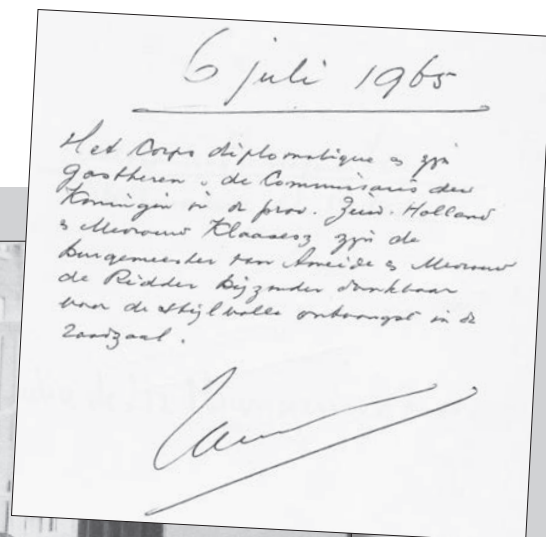 6 juli 1965
Het Corps diplomatique & zijn
gastheren, de Commissaris der
Koningin in de prov. Zuid-Holland
& Mevrouw Klaasesz zijn de
burgemeester van Ameide & Mevrouw
de Ridder bijzonder dankbaar
voor de stijlvolle ontvangst in de
raadzaal.